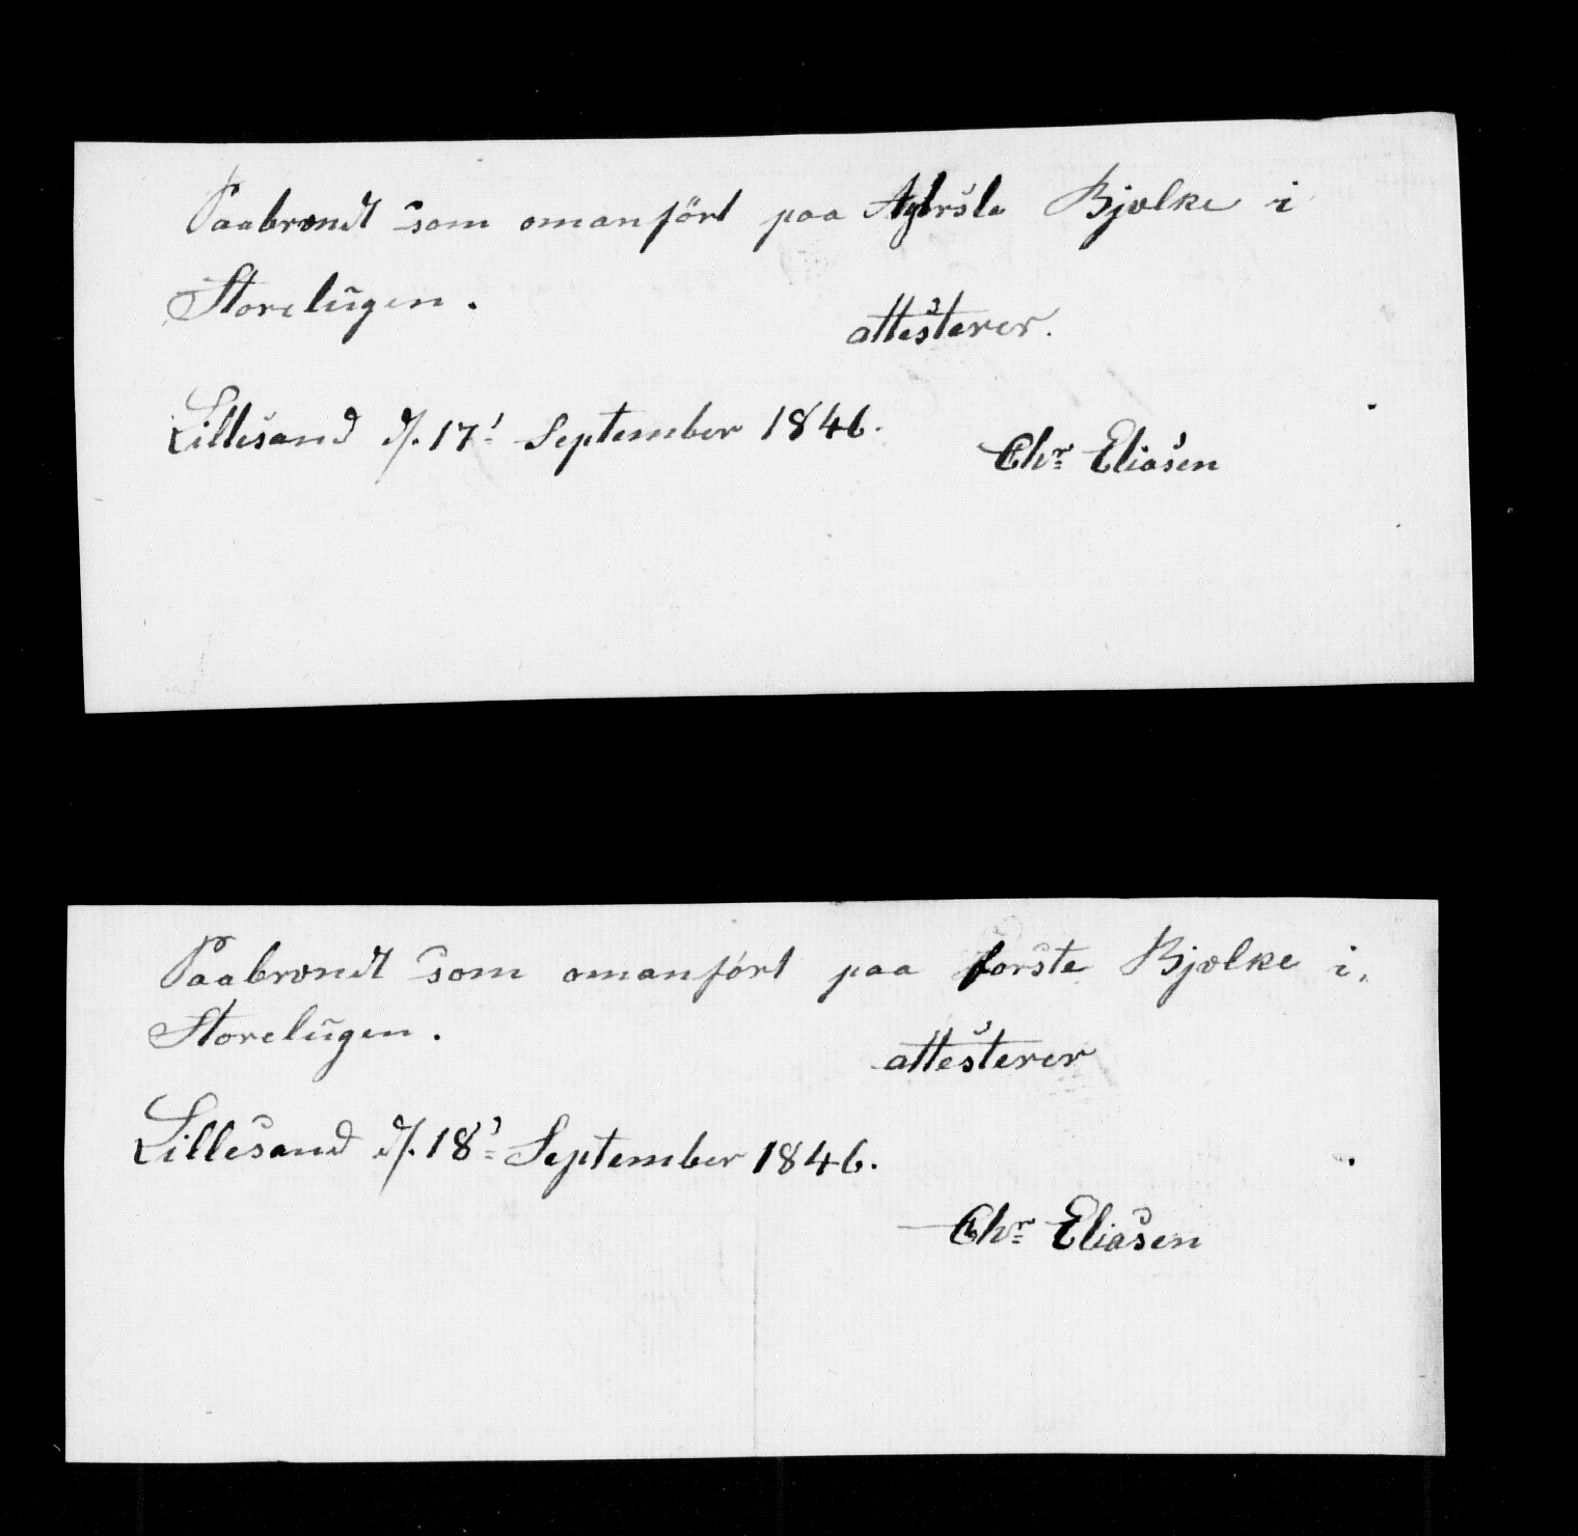 Paabrændt som omanført paa Agterste Bjælke i
Storelugen.
attesterer.
Lillesand d/. 17' September 1846.
Chr Eliasen
Paabrændt som omanført paa forste Bjælke i,
Storelugen.
attesterer
Lillesand d/. 18' September 1846.
Chr Eliasen